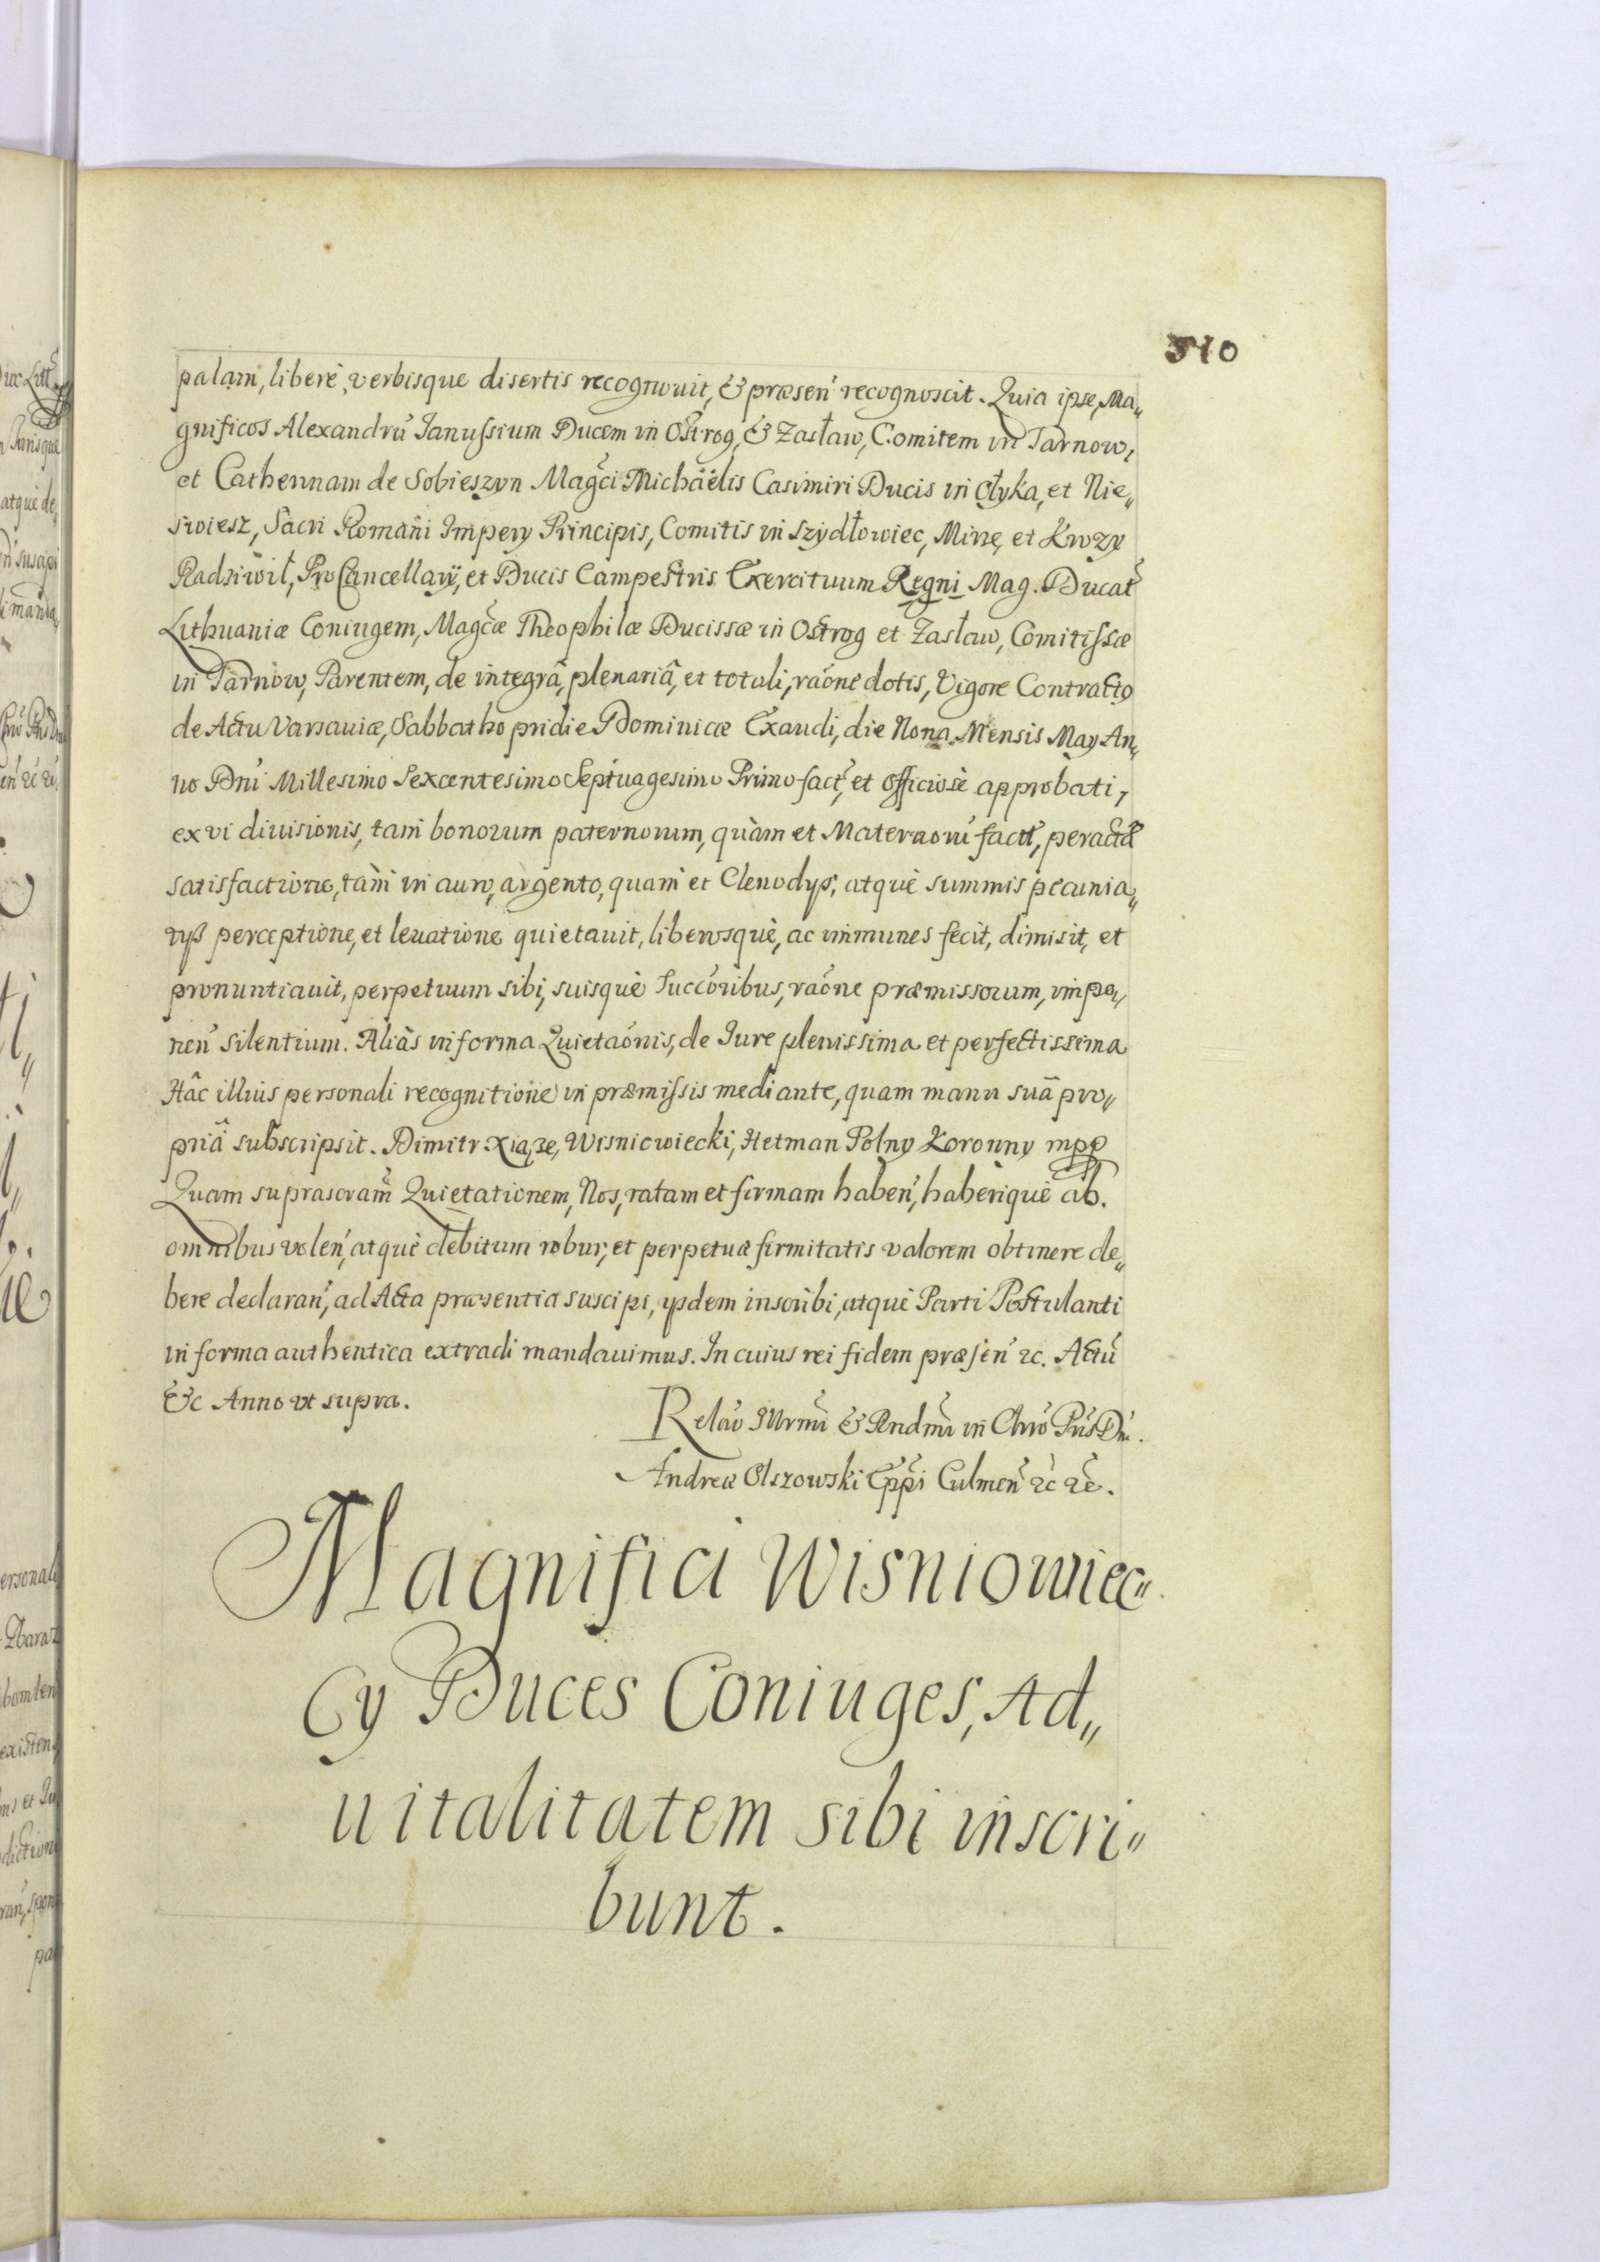 510
palam, liberè, verbisque disertis recognouit, & præsen' recognoscit. Quia ipse, Ma„
gnificos Alexandrũ Ianussium Ducem in Ostrog, & Zasław, Comitem in Tarnow,
et Catherinam de Sobieszyn Magci Michäelis Casimiri Ducis in Ołyka, et Nie„
swiesz, Sacri Romani Impery Principis, Comitis in Szydłowiec, Mirze, et Krozy
Radziwił, ProCancellarÿ, et Ducis Campestris Exercituum Regni Mag. Ducat
Lithuaniæ Coniugem, Magcæ Theophilæ Ducissæ in Ostrog et Zasław, Comitissæ
in Tarnow, Parentem, de integrâ, plenariâ, et totali, raóne dotis, Vigore Contractq
de Actu Varsauiæ, Sabbatho pridie Dominicæ Exaudi, die Nona Mensis May An„
no Dni Millesimo Sexcentesimo Septuagesimo Primo fact, et officiosè approbati,
ex vi diuisionis, tam bonorum paternorum, quàm et Maternorũ factæ, peractâ
satisfactione, tàm in auro, argento, quam et Clenodys, atquè summis pecunia„
rys perceptione, et leuatione quietauit, liberosquè, ac immunes fecit, dimisit, et
pronuntiauit, perpetuum sibi, suisquè Succoribus, raóne præmissorum, impo„
nen' silentium. Aliàs in forma Quietaónis, de Iure plenissima et perfectissima
Hâc illius personali recognitione in præmissis mediante, quam manu suâ pro„
priâ subscripsit. Dimitr Xiąze, Wisniowiecki, Hetman Polny Koronny mpp
Quam suprascram Quietationem, Nos, ratam et firmam haben', haberiquè ab.
omnibus volen', atquè debitum robur, et perpetuæ firmitatis valorem obtinere de„
bere declaran', ad Acta præsentia suscipi, ysdem inscribi, atquè Parti Postulanti
in forma authentica extradi mandauimus. In cuius rei fidem præsen' &c. Actũ
&c Anno vt supra.
Relaõ Illrmi & Rndmi in Chro Pris Dni.
Andreæ Olszowski Eppi Culmen &c &c.
Magnifici Wisniowiec„
Cy Duces Coniuges, Ad„
uitalitatem sibi inscri„
bunt.